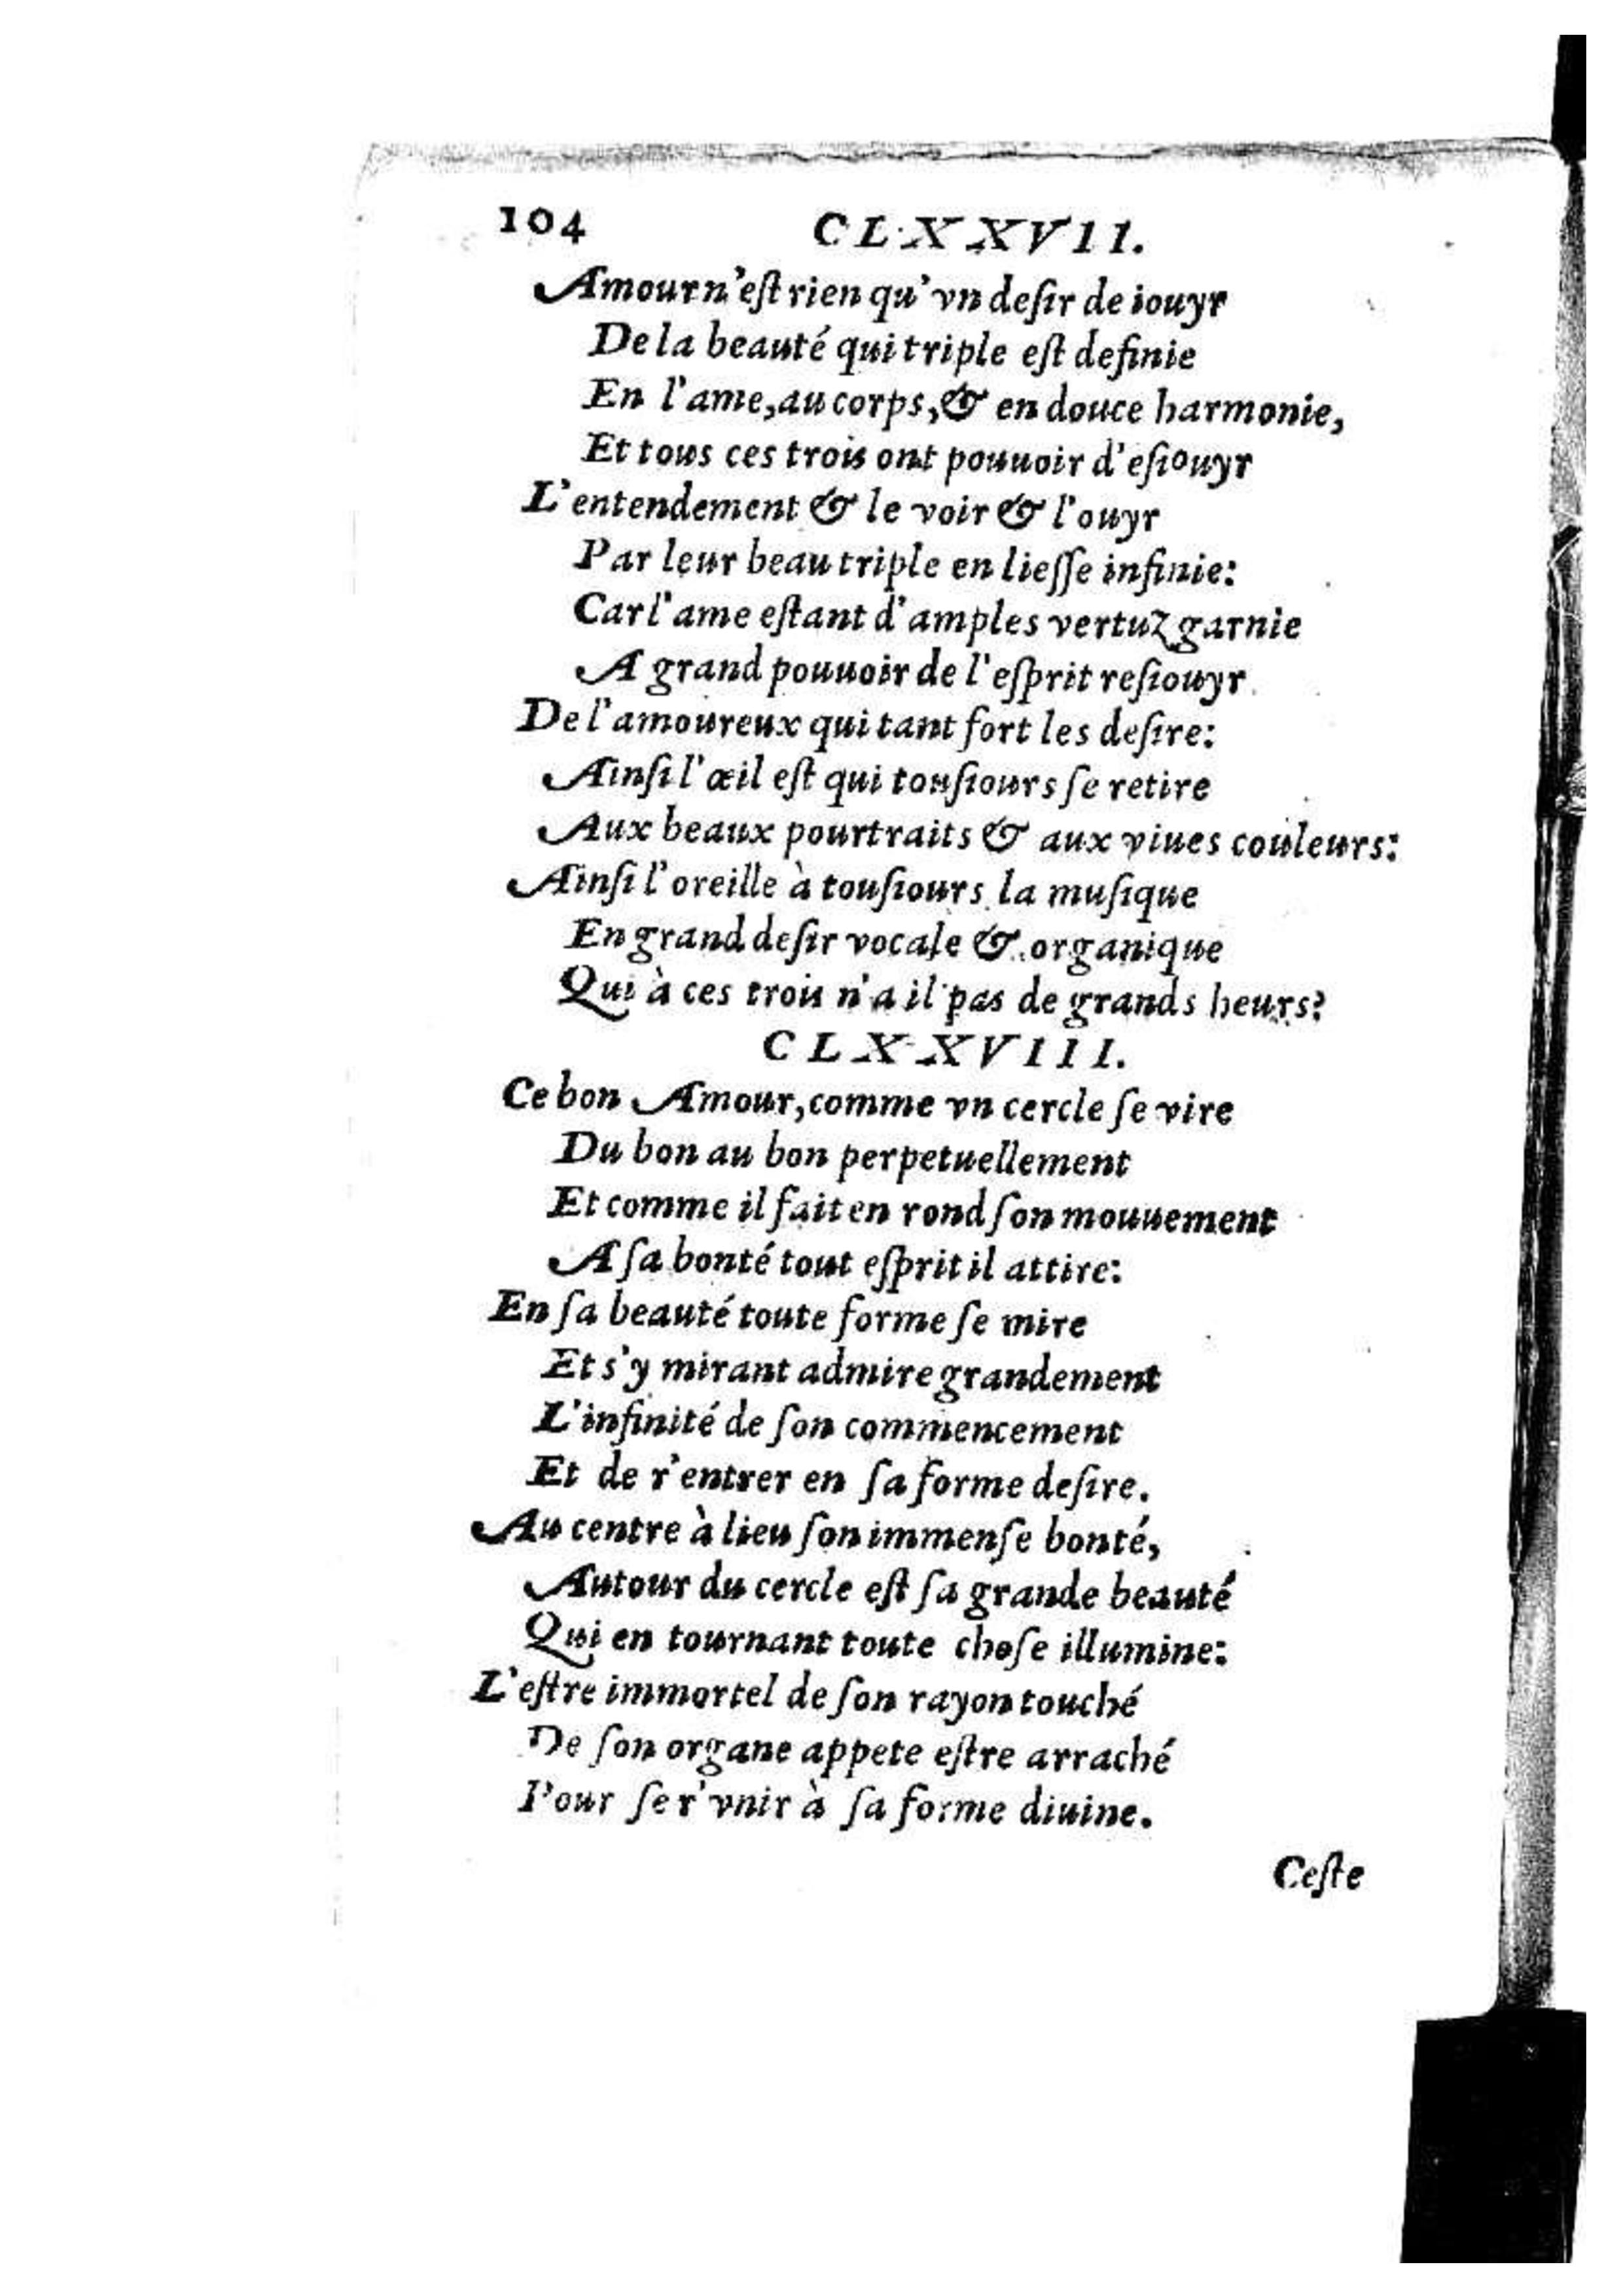 104 CLXXVII.
Amour n'eſt rien qu'vn deſir de iouyr
De la beauté qui triple eſt definie
En l'ame, au corps, & en douce harmonie,
Et tous ces trois ont pouuoir d'eſiouyr
L'entendement & le voir & l'ouyr
Par leur beau triple en lieſſe infinie:
Car l'ame eſtant d'amples vertuz garnie
A grand pouuoir de l'eſprit reſiouyr
De l'amoureux qui tant fort les deſire:
Ainſi l'œil eſt qui touſiours ſe retire
Aux beaux pourtraits & aux viues couleurs:
Ainſi l'oreille à touſiours la muſique
En grand deſir vocale & organique
Qui à ces trois n'a il pas de grands heurs?
CLXXVIII.
Ce bon Amour, comme vn cercle ſe vire
Du bon au bon perpetuellement
Et comme il fait en rond ſon mouuement
A ſa bonté tout eſprit il attire:
En ſa beauté toute forme ſe mire
Et s'y mirant admire grandement
L'infinité de ſon commencement
Et de r'entrer en ſa forme deſire.
Au centre à lieu ſon immenſe bonté,
Autour du cercle eſt ſa grande beauté
Qui en tournant toute choſe illumine:
L'eſtre immortel de ſon rayon touché
De ſon organe appete eſtre arraché
Pour ſe r'vnir à ſa forme diuine.
Ceſte